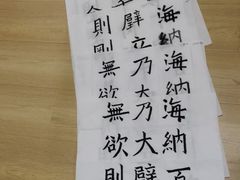 海納海納海納百
壁立乃大乃大壁
則剛無欲無欲則